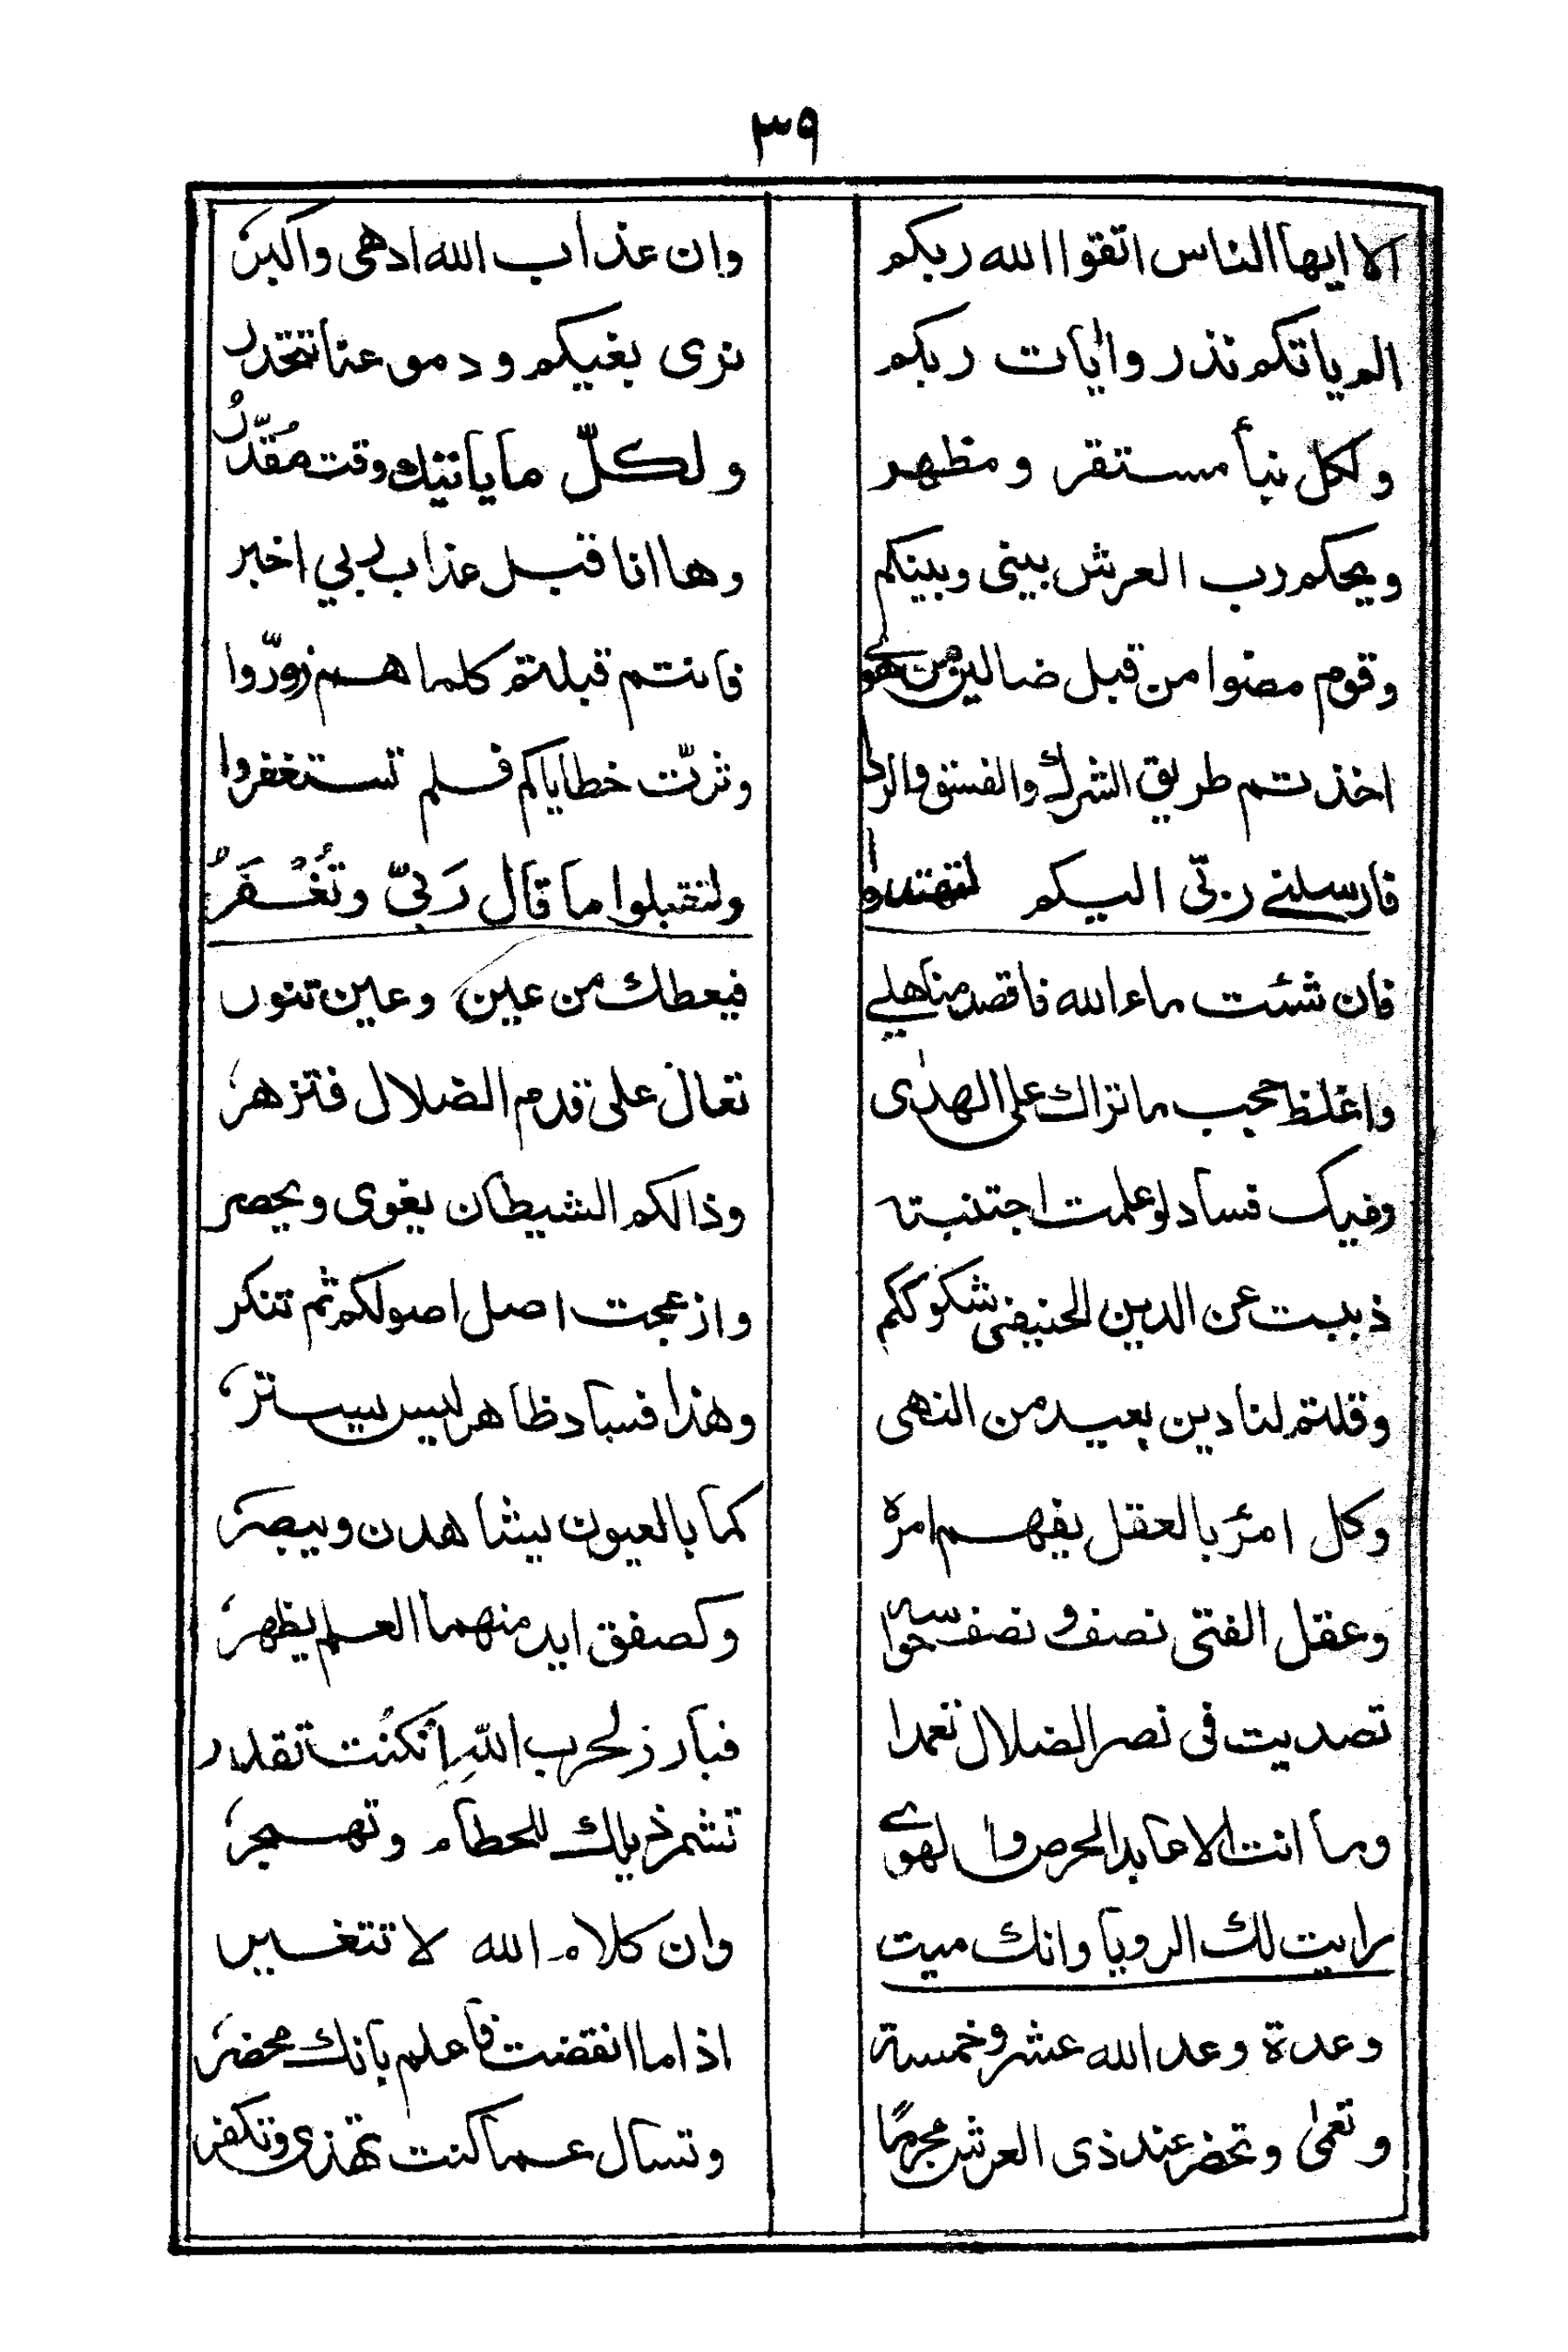 ٣٩
الا ايها الناس اتقوا الله ربكم وان عذاب الله ادهى واكبر
الم ياتكم نذر وايات ربكم نرى بغيكم ودموعنا تتحدر
ولكل نبأ مستقر ومظهر ولكلّ ما ياتيك وقت مُقدّرُ
ويحكم رب العرش بينى وبينكم وها انا قبل عذاب ربي اخبر
وقوم مضوا من قبل ضالين من هوى فانتم قبلتم كلما هم زوّروا
اخذتم طريق الشرك والفسق والردا وثرّت خطاياكم فلم تستغفروا
فارسلنے ربّى اليكم لتهتدوا ولتقبلوا ما قال رَبّيّ وتُغْفَرُ
فان شئت ماء الله فاقصد مناهلے فيعطك من عين وعين تنور
واغلظ حجب ما نراك على الهدى تعال على قدم الضلال فتزهر
وفيك فساد لو علمت اجتنبته وذالكم الشيطان يغوى ويحصر
ذببت عن الدين الحنيفى شكوككم وازعجت اصل اصولكم ثم تنكر
وقلتم لنا دين بعيد من النهى وهذا فساد ظاهر ليس يستر
وكل امرٍ بالعقل يفهم امره كما بالعيون يشاهدن ويبصر
وعقل الفتى نصف ونصف حواسه وكصفق ايد منهما العلم يظهر
تصديت فى نصر الضلال تعمدا فبارز لحرب اللهِ إنْ كُنت تقدر
وما انت الا عابد الحرص والهوے تشمر ذيلك للحطام وتهجر
رايت لك الرويا وانك ميت وان كلام الله لا تتغير
وعدة وعد الله عشر وخمسة اذا ما انقضت فاعلم بانك محضر
وتعمىٰ وتحضر عند ذى العرش مجرمًا وتسال عما كنت تهذى وتكفر